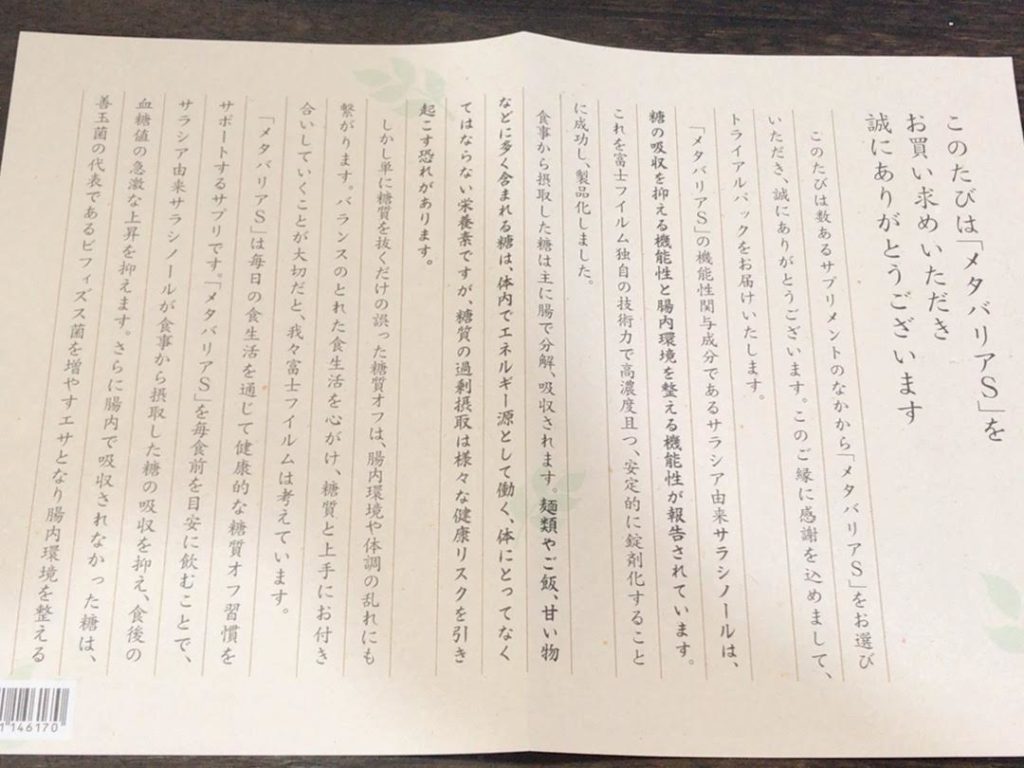 このたびは「メタバリアS」を
お買い求めいただき
誠にありがとうございます
このたびは数あるサプリメントのなかから「メタバリアS」をお選び
いただき、誠にありがとうございます。このご縁に感謝を込めまして、
トライアルパックをお届けいたします。
「メタバリアS」の機能性関与成分であるサラシア由来サラシノールは、
糖の吸収を抑える機能性と腸内環境を整える機能性が報告されています。
これを富士フイルム独自の技術力で高濃度且つ、安定的に錠剤化すること
に成功し、製品化しました。
食事から摂取した糖は主に腸で分解、吸収されます。麺類やご飯、甘い物
などに多く含まれる糖は、体内でエネルギー源として働く、体にとってなく
てはならない栄養素ですが、糖質の過剰摂取は様々な健康リスクを引き
起こす恐れがあります。
しかし単に糖質を抜くだけの誤った糖質オフは、腸内環境や体調の乱れにも
繋がります。バランスのとれた食生活を心がけ、糖質と上手にお付き
合いしていくことが大切だと、我々富士フイルムは考えています。
「メタバリアS」は毎日の食生活を通じて健康的な糖質オフ習慣を
サポートするサプリです。「メタバリアS」を毎食前を目安に飲むことで、
サラシア由来サラシノールが食事から摂取した糖の吸収を抑え、食後の
血糖値の急激な上昇を抑えます。さらに腸内で吸収されなかった糖は、
善玉菌の代表であるビフィズス菌を増やすエサとなり腸内環境を整える
1146170